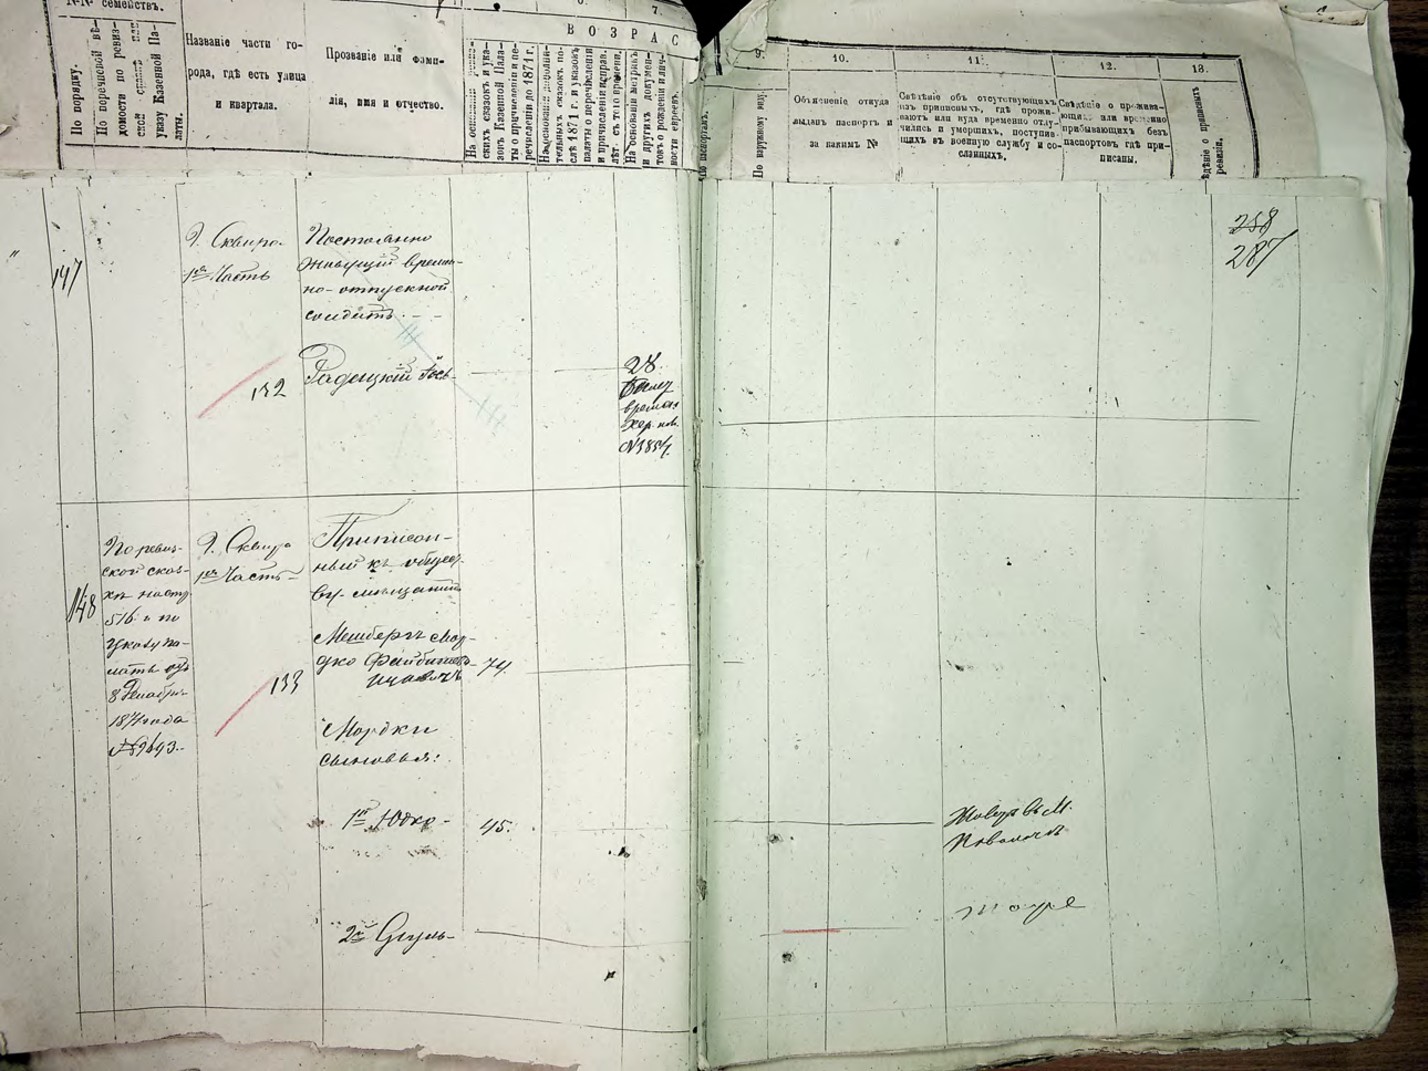 №№ семействъ.
По порядку.
По перечневой вѣ-
домости по ревиз-
ской сказкѣ или
указу Казенной Па-
латы.
Названіе части го-
рода, гдѣ есть улица
и квартала.
Прозваніе или фами-
лія, имя и отчество.
6.
7.
ВОЗРАС
На основаніи ревиз-
скихъ сказокъ и ука-
зовъ Казенной Пала-
ты о причисленіи и пе-
речисленіи до 1871 г.
На основаніи дополни-
тельныхъ сказокъ по-
слѣ 1871 г. и указовъ
палаты о перечисленіи
и причисленіи исправ.
лѣт. съ того времени.
На основаніи метрикъ
и другихъ докумен-
товъ о рожденіи и лич-
ности евреевъ.
По паспортамъ.
9.
По наружному виду.
10.
Объясненіе откуда
выданъ паспортъ и
за какимъ №
11.
Свѣдѣніе объ отсутствующихъ
изъ приписныхъ, гдѣ прожи-
ваютъ или куда временно отлу-
чились и умершихъ, поступив-
шихъ въ военную службу и со-
сланныхъ.
12.
Свѣдѣніе о прожива-
ющихъ или временно
прибывающихъ безъ
паспортовъ гдѣ при-
писаны.
13.
ѣдѣніе о приписныхъ
ревизіи.
258
287
147
Г. Сквира
1ая Часть
Постоянно
живущій времен-
но-отпускной
солдатъ
132
Радецкій Іось-
28
билет
времен
Хер. пов.
148
По ревиз-
ской сказ-
кѣ наст
516 и по
указу па-
латы отъ
8 Декабря
1871 года
№ 9693
Г. Сквира
1ая Часть
133
Приписан-
ный къ общест-
ву мещанинъ
Мешберъ Мор-
дко Файбише-
Ицковичъ
74
Мордки
сыновья:
1й Юдко-
45.
Живутъ въ М.
Паволочѣ
2й Сруль-
тоже